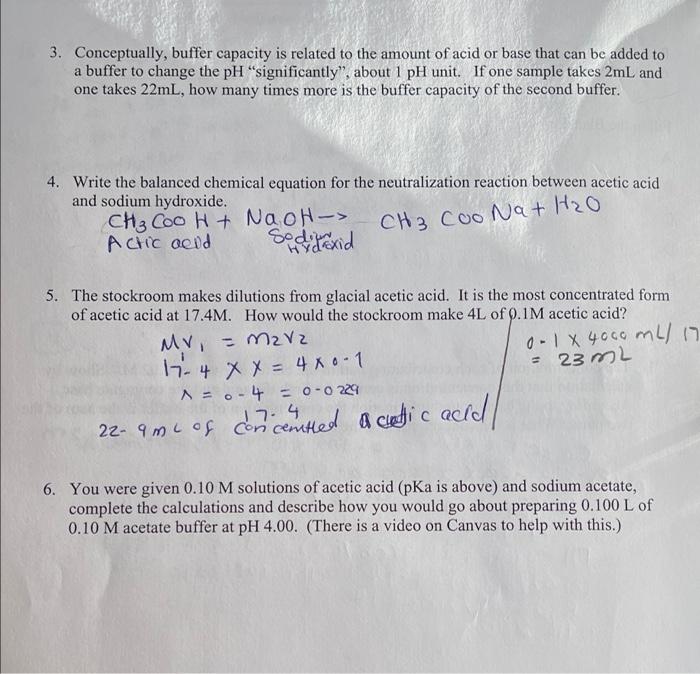 3. Conceptually, buffer capacity is related to the amount of acid or base that can be added to
a buffer to change the pH “significantly”, about 1 pH unit. If one sample takes 2mL and
one takes 22mL, how many times more is the buffer capacity of the second buffer.
4. Write the balanced chemical equation for the neutralization reaction between acetic acid
and sodium hydroxide.
CH3 COO H + NaOH -> CH3 COO Na + H2O
Actic acid Sodium
Hydexid
5. The stockroom makes dilutions from glacial acetic acid. It is the most concentrated form
of acetic acid at 17.4M. How would the stockroom make 4L of 0.1M acetic acid?
M1V1 = M2V2
17-4 x x = 4 x 0-1
x = 0-4 = 0-0229
17-4
22-9 mL of concentted acetic acid
0-1 x 4000 mL/ 17
= 23 mL
6. You were given 0.10 M solutions of acetic acid (pKa is above) and sodium acetate,
complete the calculations and describe how you would go about preparing 0.100 L of
0.10 M acetate buffer at pH 4.00. (There is a video on Canvas to help with this.)